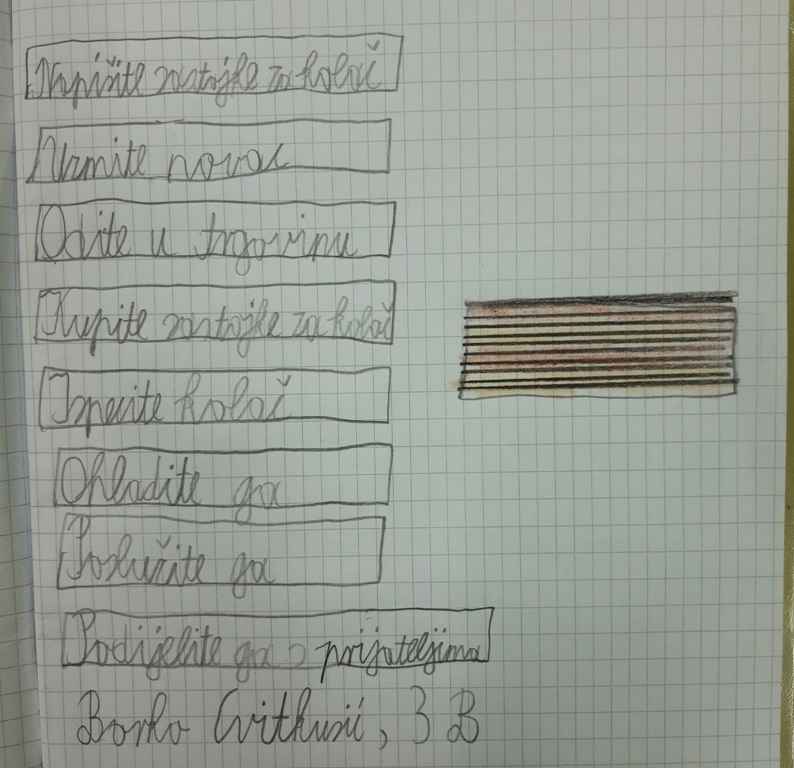 Napišite sastojke za kolač
Uzmite novac
Odite u trgovinu
Kupite sastojke za kolač
Ispecite kolač
Ohladite ga
Poslužite ga
Podijelite ga s prijateljima
Borko 3 B